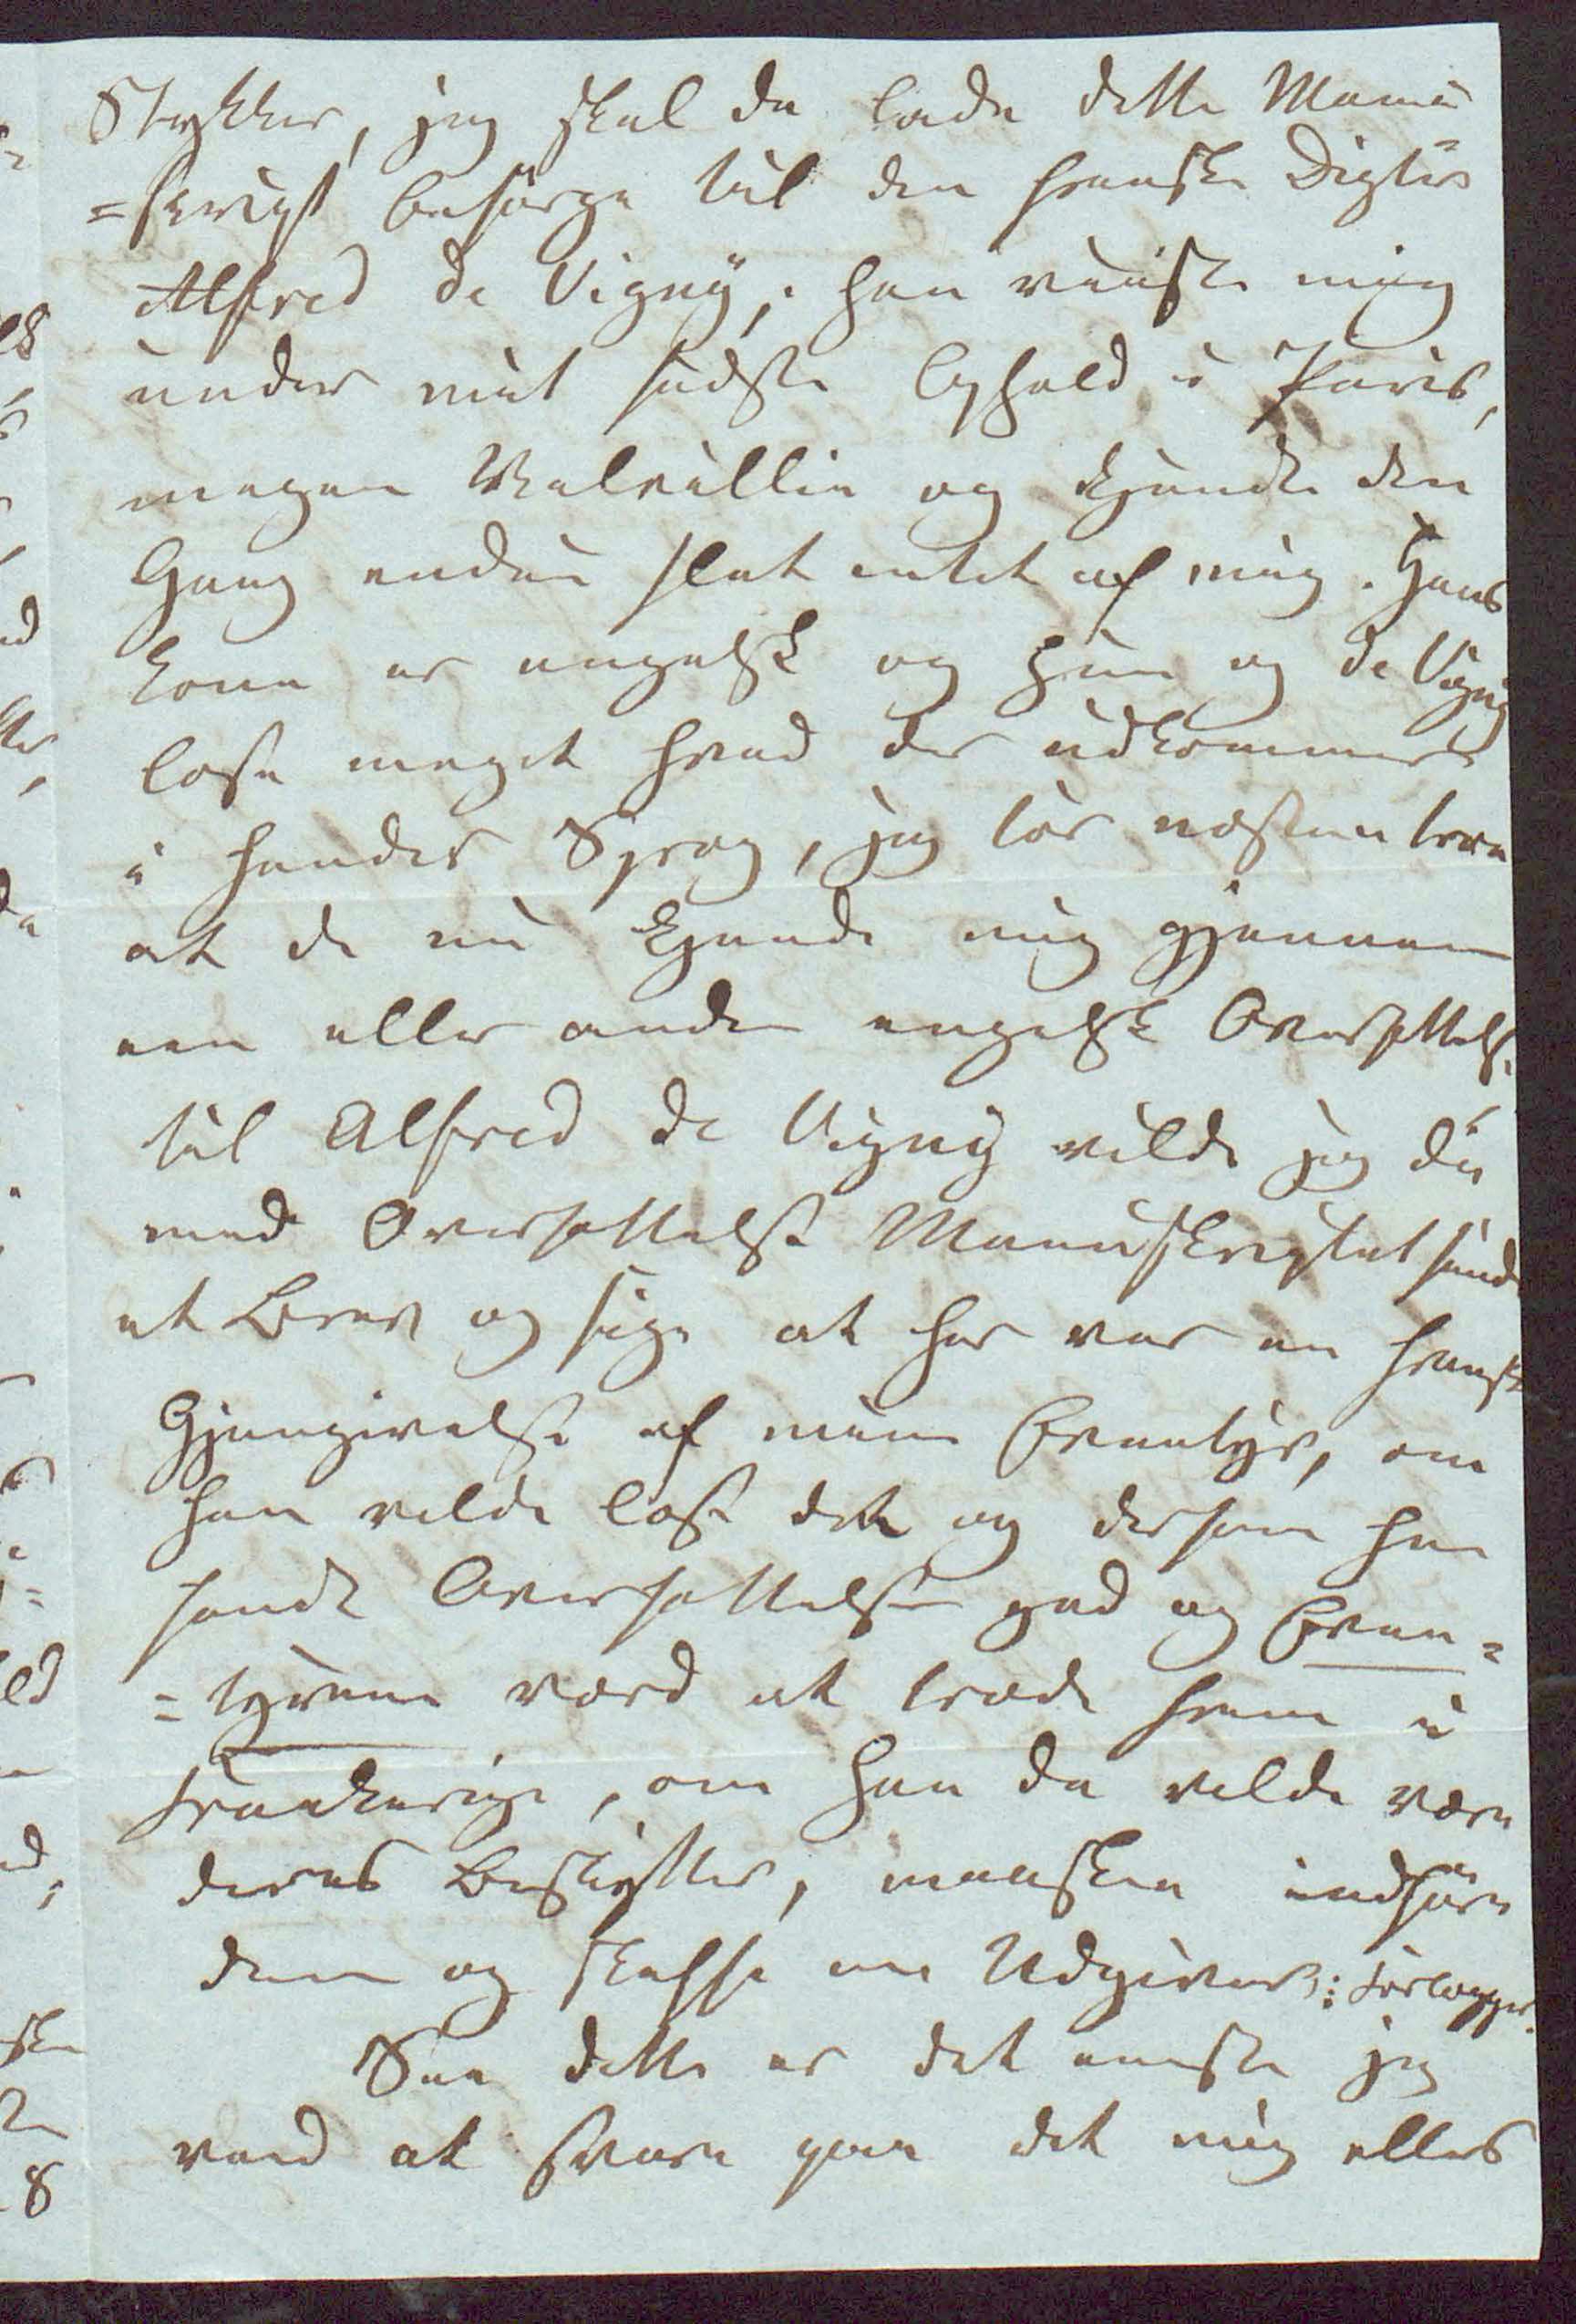 Stykker, jeg skal da lade dette Manu
=skript besørge til den franske Digter
Alfred de Vigny; han viiste mig
under mit sidste Ophold i Paris,
megen Velvillie og kjendte den
Gang endnu slet intet af mig. Hans
Kone er engelsk og hun og de Vigny
læse meget hvad der udkommer
i hendes Sprog, jeg tør næsten troe
at de nu kjende mig gjennem
een eller anden engelsk Oversættelse
til Alfred de Vigny vilde jeg du
med Oversættelse Manuskriptet sende
et Brev og sige at her var en fransk
Gjengivelse af mine Eventyr, om
han vilde læse det og dersom han
fandt Oversættelsen god og Even=
=tyrene værd at træde frem i
Frankerige, om han da vilde være
deres Beskytter, maaskee indføre
dem og skaffe en Udgiver: Forlægger.
See dette er det eneste jeg
veed at svare paa det mig ellers